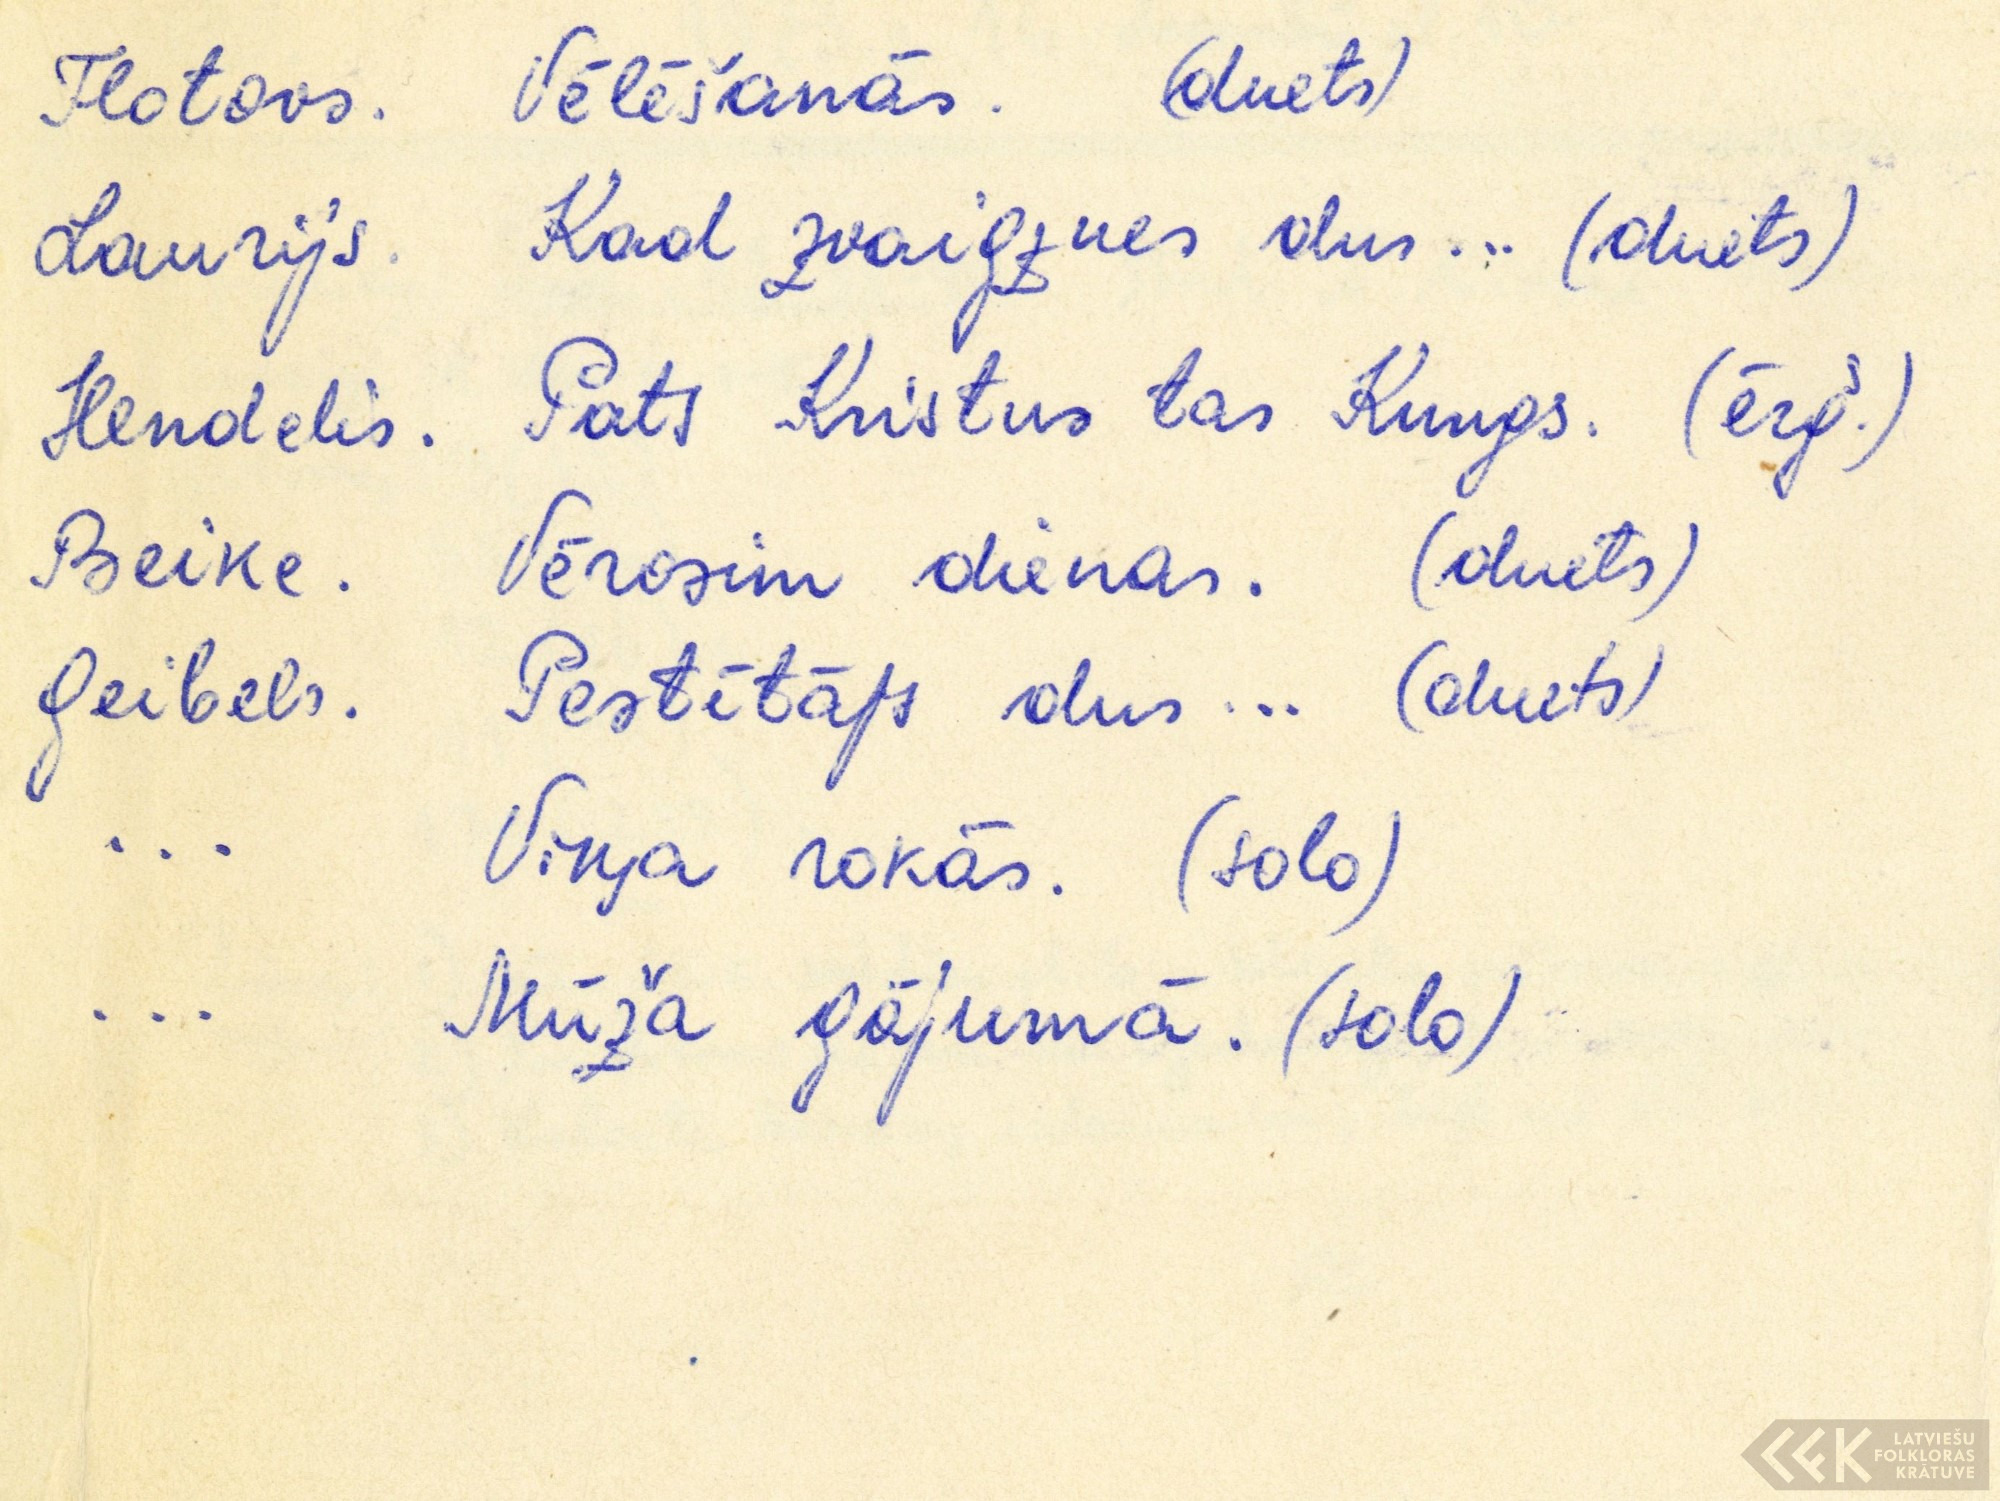 Flotovs. Vēlēšanās. (duets)
Laurijs. Kad zvaigznes dus... (duets)
Hendelis. Pats Kristus tas Kungs. (ērģ.)
Beike. Vērosim dienas. (duets)
Geibels. Pestītājs dus... (duets)
... Viņa rokās. (solo)
... Mūža gājumā. (solo)
LATVIEŠU
FOLKLORAS
KRĀTUVE